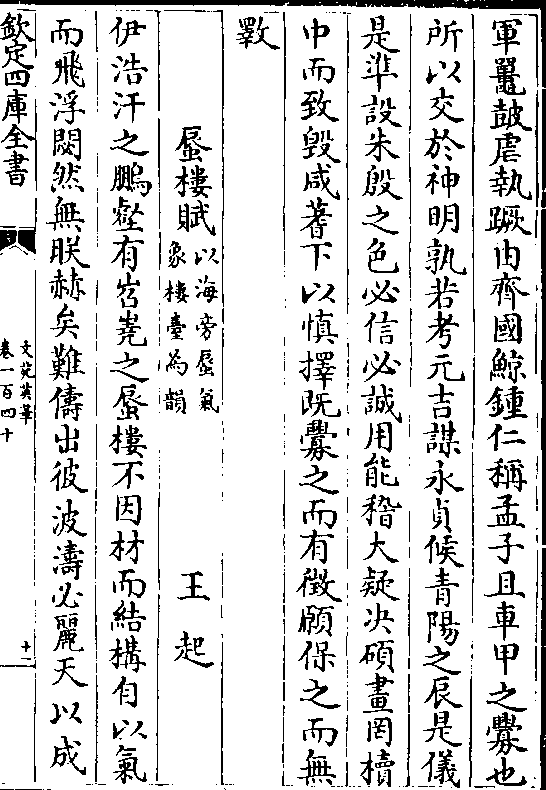 軍鼍鼓虐執蹶由齊國鯨鍾仁稱孟子且車甲之釁也
所以交於神明孰若考元吉謀永貞候青陽之辰是儀
是準設朱殷之色必信必誠用能稽大疑决碩畫罔櫝
中而致毀咸蓍下以慎擇既釁之而有徴願保之而無
斁
蜃樓賦
以海旁蜃氣
象樓臺為韻
王起
伊浩汗之鵬壑有岧嶤之蜃樓不因材而結構自以氣
而飛浮閟然無朕赫矣難儔出彼波濤必麗天以成
欽定四庫全書
文苑英華
卷一百四十
十二